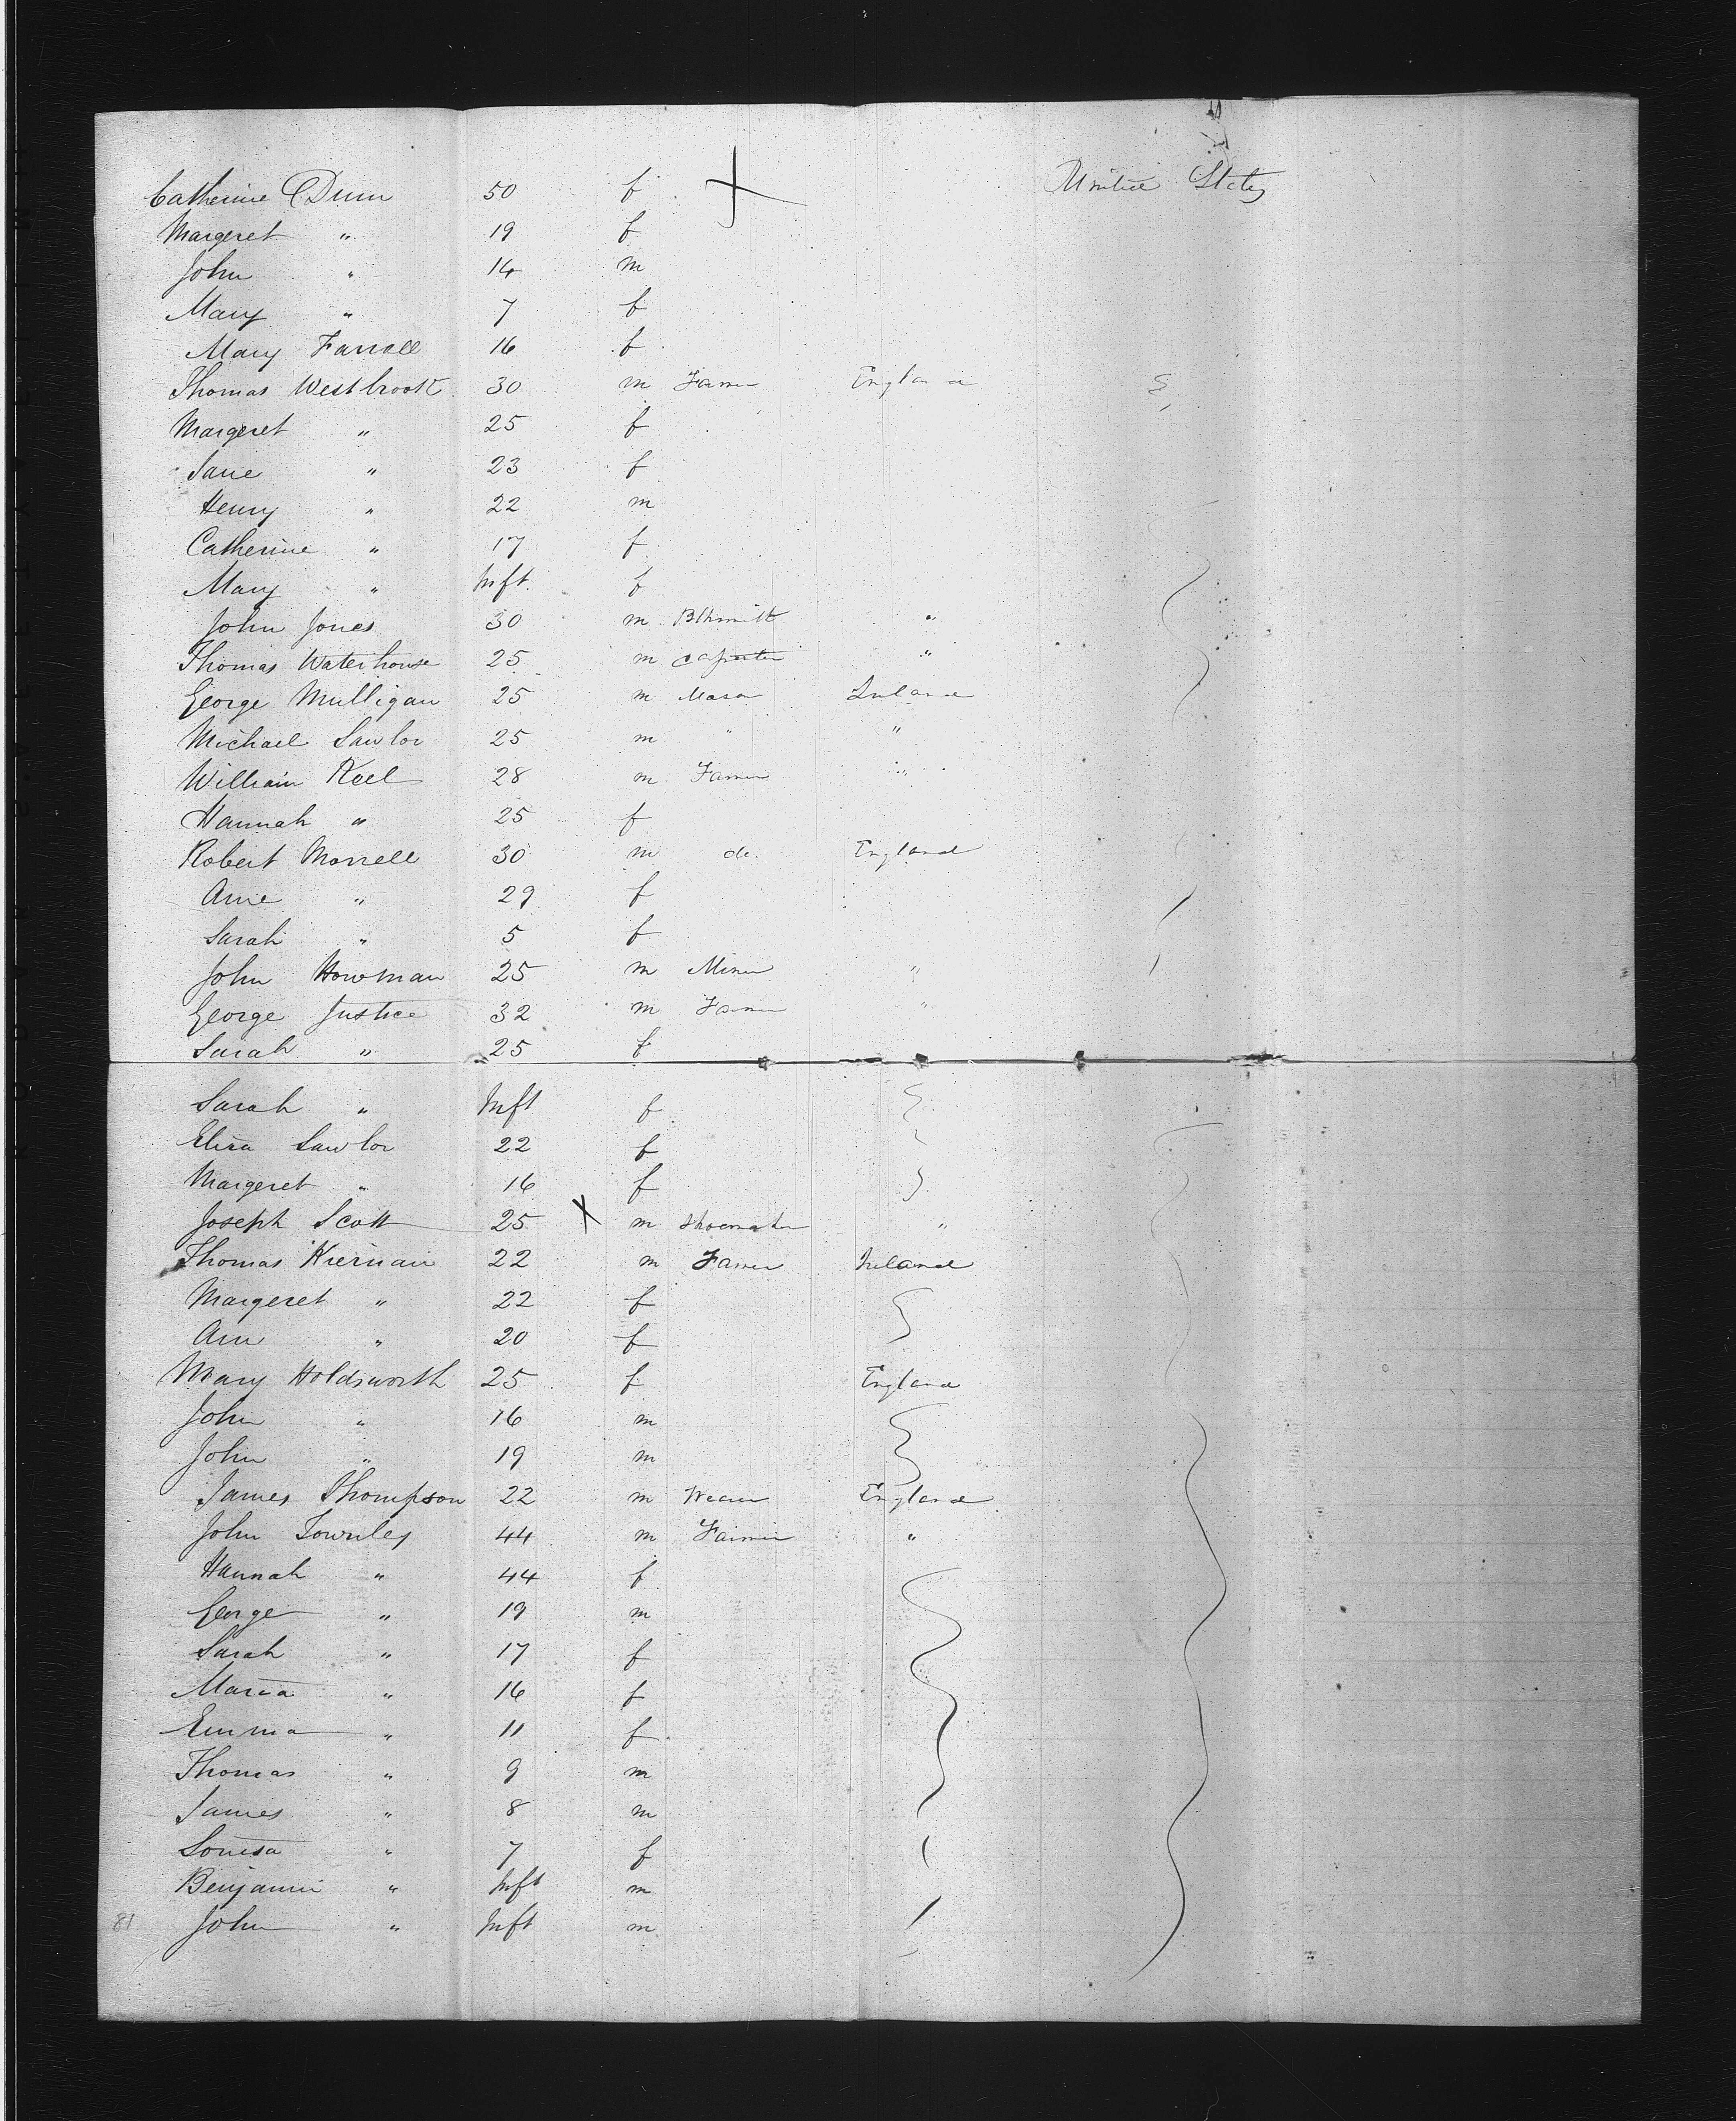 Catherine Dunn 50 f United States
Margeret " 19 f
John " 14 m
Mary " 7 f
Mary Farrell 16 f
Thomas Westbrook 30 m Farmer England
Margeret " 25 f
Jane " 23 f
Henry " 22 m
Catherine " 17 f
Mary " Inft f
John Jones 30 m Blksmith "
Thomas Waterhouse 25 m "
George Mulligan 25 m Mason Ireland
Michael Lawlor 25 m " "
William Keel 28 m Farmer "
Hannah " 25 f
Robert Morrell 30 m do. England
Ane " 29 f
Sarah " 5 f
John Howman 25 m Miner "
George Justice 32 m Farmer "
Sarah " 25 f
Sarah " Inft f
Eliza Lawlor 22 f
Margeret " 16 f
Joseph Scott 25 X m Shoemaker "
Thomas Kiernan 22 m Farmer Ireland
Margeret " 22 f
Ann " 20 f
Mary Holdsworth 25 f England
John " 16 m
John " 19 m
James Thompson 22 m Weaver England
John Townley 44 m Farmer "
Hannah " 44 f
George " 19 m
Sarah " 17 f
Maria " 16 f
Emma " 11 f
Thomas " 9 m
James " 8 m
Louisa " 7 f
Benjamin " Inft m
81 John " Inft m